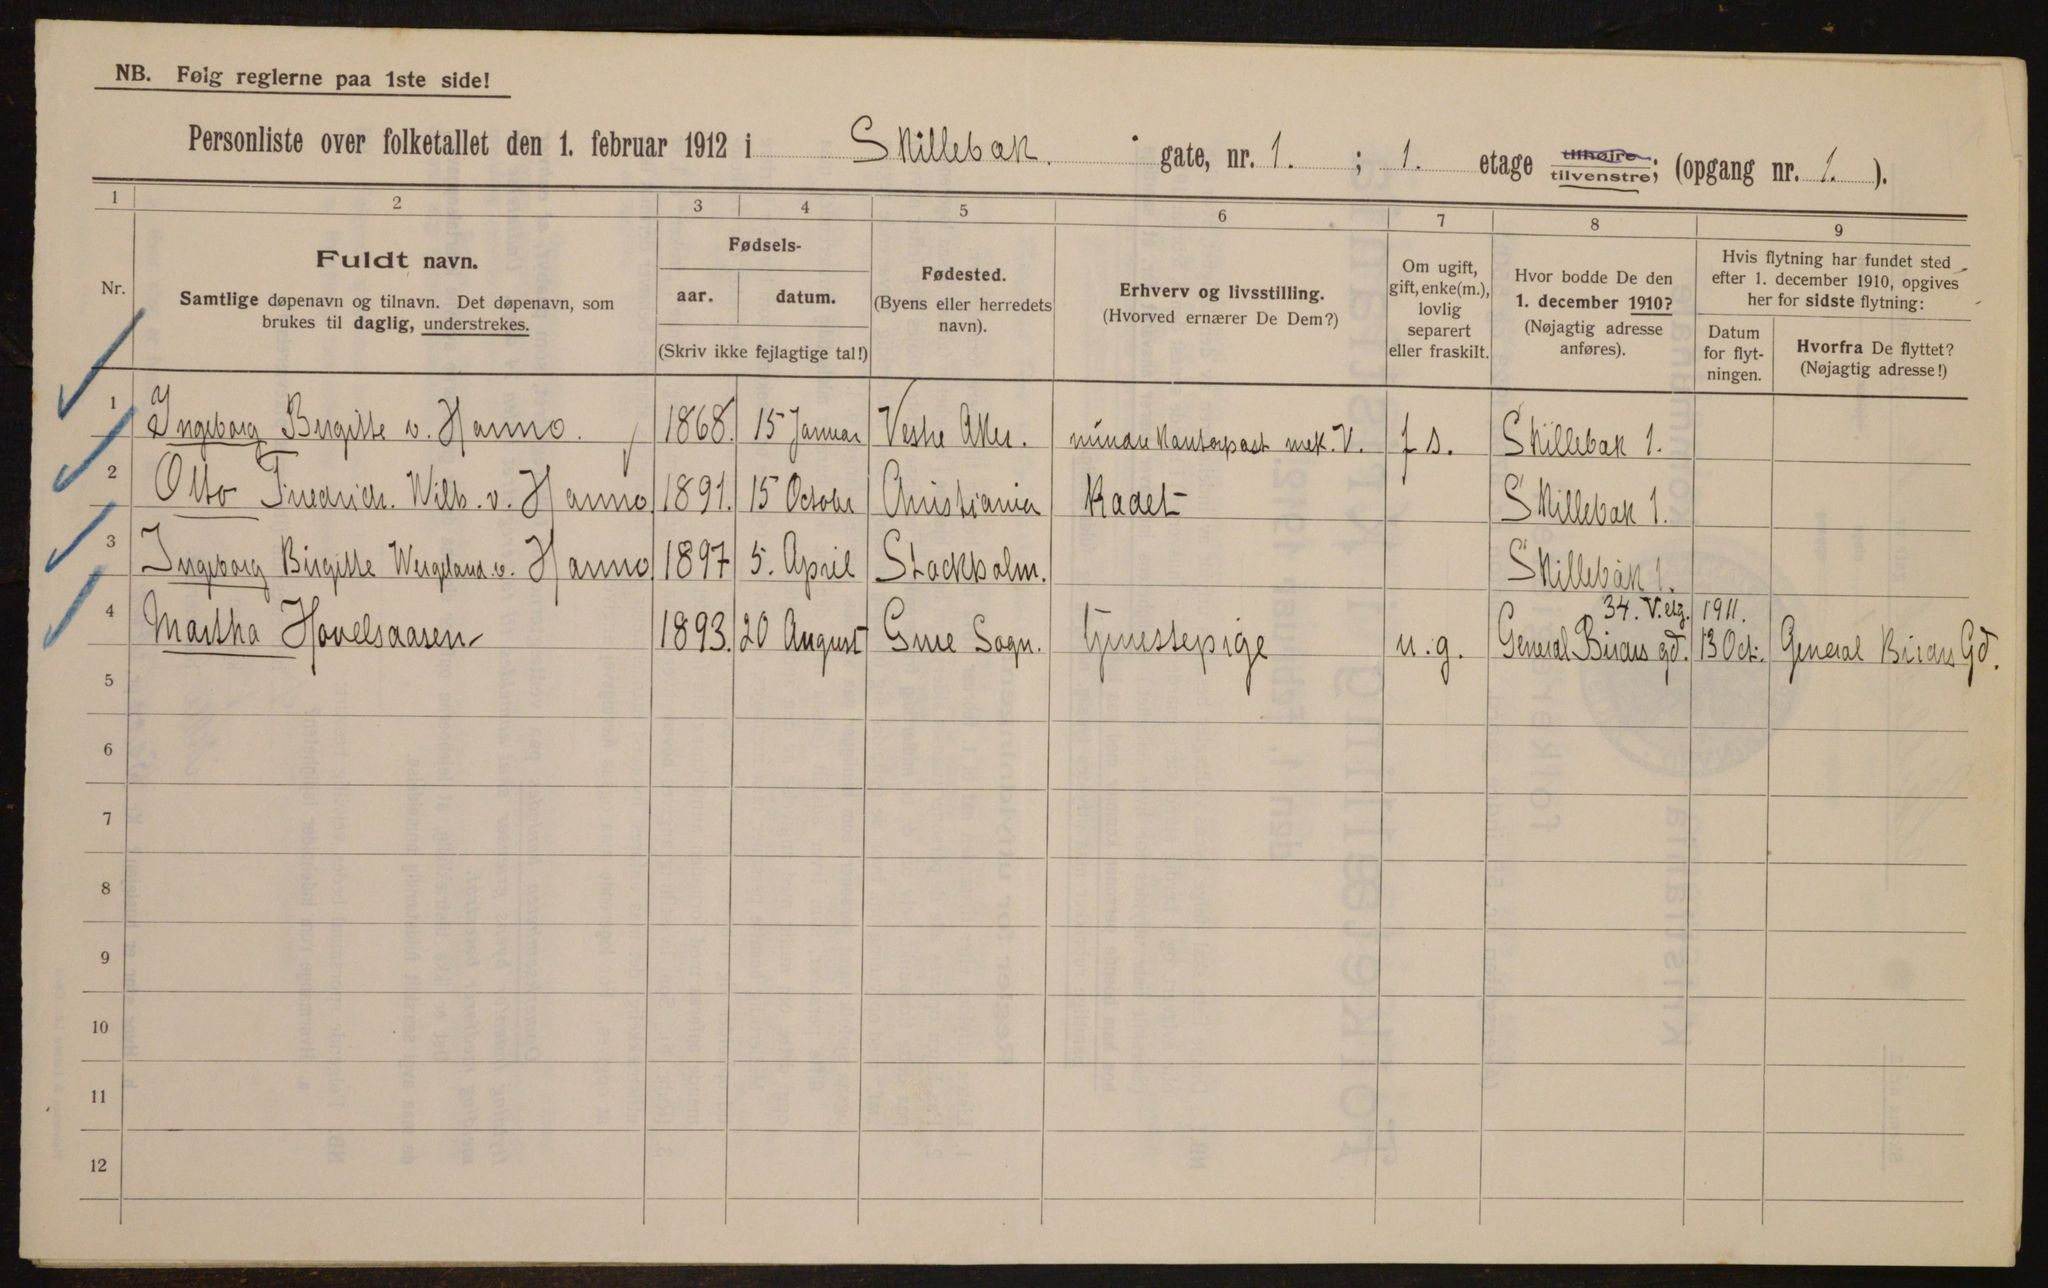 NB. Følg reglerne paa 1ste side!
Personliste over folketallet den 1. februar 1912 i Skillebæk. gate, nr. 1. ; 1. etage tilhøjre tilvenstre; (opgang nr. 1. ).
1 2 3 4 5 6 7 8 9
Nr.
Fuldt navn.
Samtlige døpenavn og tilnavn. Det døpenavn, som
brukes til daglig, understrekes.
Fødsels-
aar. datum.
(Skriv ikke fejlagtige tal!)
Fødested.
(Byens eller herredets
navn).
Erhverv og livsstilling.
(Hvorved ernærer De Dem?)
Om ugift,
gift, enke(m.),
lovlig
separert
eller fraskilt.
Hvor bodde De den
1. december 1910?
(Nøjagtig adresse
anføres).
Hvis flytning har fundet sted
efter 1. december 1910, opgives
her for sidste flytning:
Datum
for flyt-
ningen.
Hvorfra De flyttet?
(Nøjagtig adresse!)
1 Ingeborg Birgitte v. Hanno. 1868. 15 Januar Vestre Aker. mindre Kontorpost mek. V. f s. Skillebæk 1.
2 Otto Friedrich. Wilh. v. Hanno 1891. 15 October Christiania Kadet Skillebæk 1.
3 Ingeborg Birgitte Wergeland v. Hanno 1897 5. April Stockholm. Skillebæk 1.
34. V. etg. 1911.
4 Martha Hovelsaasen 1893. 20 August Sogn. tjenestepige u. g. General Birchs gd. 13 Oct. General Birchs Gd.
5
6
7
8
9
10
11
12